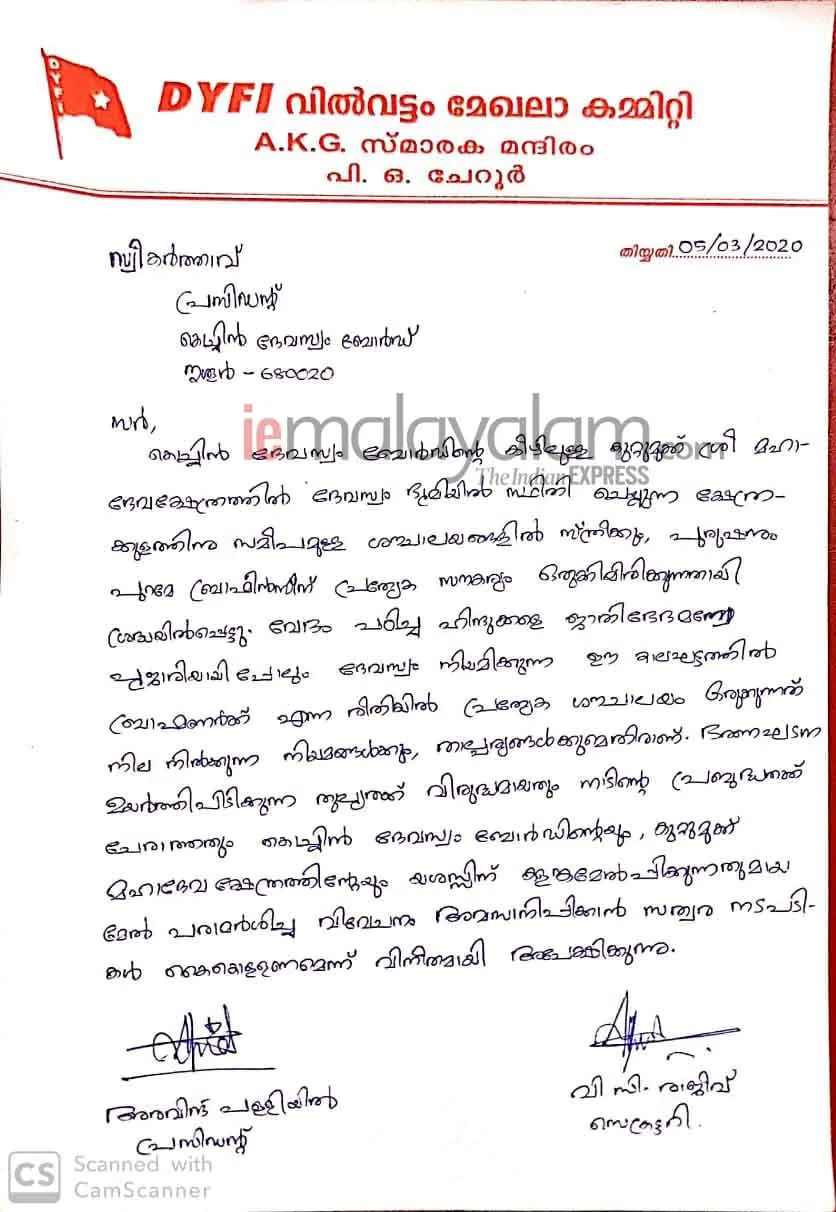 DYFI
DYFI വിൽവട്ടം മേഖലാ കമ്മിറ്റി
A.K.G. സ്മാരക മന്ദിരം
പി. ഒ. ചേറൂർ
തിയ്യതി 05/03/2020
സ്വീകർത്താവ്
പ്രസിഡന്റ്
കൊച്ചിൻ ദേവസ്വം ബോർഡ്
തൃശൂർ - 680020
സർ,
iemalayalam.com
The Indian EXPRESS
കൊച്ചിൻ ദേവസ്വം ബോർഡിന്റെ കീഴിലുള്ള കുറ്റുമുക്ക് ശ്രീ മഹാ-
ദേവക്ഷേത്രത്തിൽ ദേവസ്വം ഭൂമിയിൽ സ്ഥിതി ചെയ്യുന്ന ക്ഷേത്ര-
ക്കുളത്തിനു സമീപമുള്ള ശൗചാലയങ്ങളിൽ സ്ത്രീക്കും, പുരുഷനും
പുറമേ ബ്രാഹ്മിൻസിന് പ്രത്യേക സൗകര്യം ഒരുക്കിയിരിക്കുന്നതായി
ശ്രദ്ധയിൽപ്പെട്ടു. വേദം പഠിച്ച ഹിന്ദുക്കളെ ജാതിഭേദമന്യേ
പൂജാരിയായി പോലും ദേവസ്വം നിയമിക്കുന്ന ഈ കാലഘട്ടത്തിൽ
ബ്രാഹ്മണർക്ക് എന്ന രീതിയിൽ പ്രത്യേക ശൗചാലയം ഒരുക്കുന്നത്
നില നിൽക്കുന്ന നിയമങ്ങൾക്കും, താല്പര്യങ്ങൾക്കുമെതിരാണ്. ഭരണഘടന
ഉയർത്തിപിടിക്കുന്ന തുല്യതക്ക് വിരുദ്ധമായതും നാടിന്റെ പ്രബുദ്ധതക്ക്
ചേരാത്തതും കൊച്ചിൻ ദേവസ്വം ബോർഡിന്റെയും, കുറ്റുമുക്ക്
മഹാദേവ ക്ഷേത്രത്തിന്റേയും യശസ്സിന് കളങ്കമേൽപ്പിക്കുന്നതുമായ
മേൽ പരാമർശിച്ച വിവേചനം അവസാനിപ്പിക്കാൻ സത്വര നടപടി-
കൾ കൈകൊള്ളണമെന്ന് വിനീതമായി അപേക്ഷിക്കുന്നു.
അരവിന്ദ് പള്ളിയിൽ
പ്രസിഡന്റ്
വി സി. രാജീവ്
സെക്രട്ടറി.
CS Scanned with
CamScanner